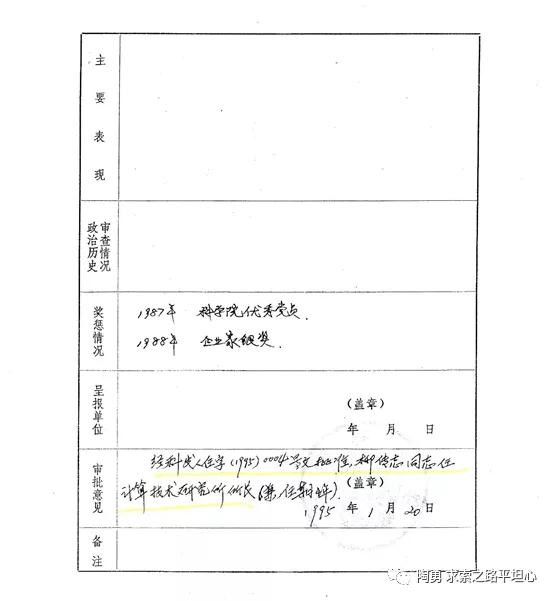 主要表现
政治历史审查情况
奖惩情况
1987年 科学院优秀党员.
1988年 企业家银奖.
呈报单位
(盖章)
年 月 日
审批意见
经科发人任字(1995)0004号文批准,柳传志同志任
计算技术研究所所长(兼,任期四年).
(盖章)
1995 年 1 月 20 日
备注
陶勇 求索之路平坦心